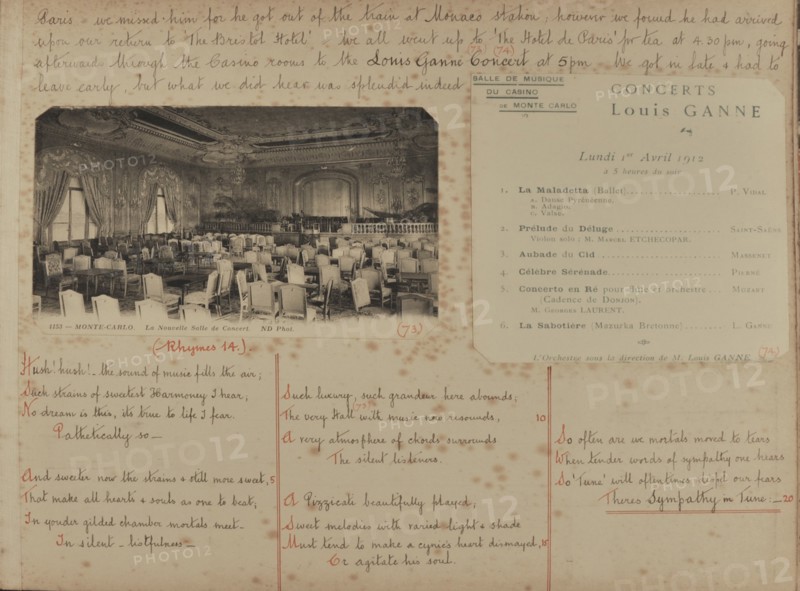 Paris - we missed him for he got out of the train at Monaco station; however we found he had arrived
upon our return to "The Bristol Hotel" we all went up to 'The Hotel de Paris' for tea at 4.30 pm, going
(73) (74)
afterwards through the Casino rooms to the Louis Ganne Concert at 5 pm - We got in late & had to
leave early, but what we did hear was splendid indeed
SALLE DE MUSIQUE
DU CASINO
DE MONTE CARLO
CONCERTS
Louis GANNE
Lundi 1er Avril 1912
à 5 heures du soir
1. La Maladetta (Ballet) P. VIDAL
a. Danse Pyrénéenne.
B. Adagio.
C. Valse.
2. Prélude du Déluge SAINT-SAËNS
Violon solo : M. MARCEL ETCHECOPAR.
3. Aubade du Cid MASSENET
4. Célèbre Sérénade PIERNÉ
5. Concerto en Ré pour flûte et orchestre MOZART
(Cadence de DONJON).
M. GEORGES LAURENT.
6. La Sabotière (Mazurka Bretonne) L. GANNE
L'Orchestre sous la direction de M. Louis GANNE
(74)
1155 — MONTE-CARLO. La Nouvelle Salle de Concert. ND Phot
(73)
(Rhymes 14.)
Hush! hush! - the sound of music fills the air;
Such strains of sweetest Harmoney I hear;
No dream is this, its true to life I fear.
Pathetically so —
And sweeter now the strains & still more sweet, 5
That make all hearts & souls as one to beat;
In yonder gilded chamber mortals meet -
In silent - listfulness -
Such luxury, such grandeur here abounds;
(73)
The very Hall with music now resounds, 10
A very atmosphere of chords surrounds
The silent listeners.
A Pizzicati beautifully played;
Sweet melodies with varied light & shade
Must tend to make a cynic's heart dismayed, 15
Or agitate his soul.
So often are we mortals moved to tears
When tender words of sympathy one hears
So 'Tune' will oftentimes our fears
Theres Sympathy in Tune: - 20
PHOTO12